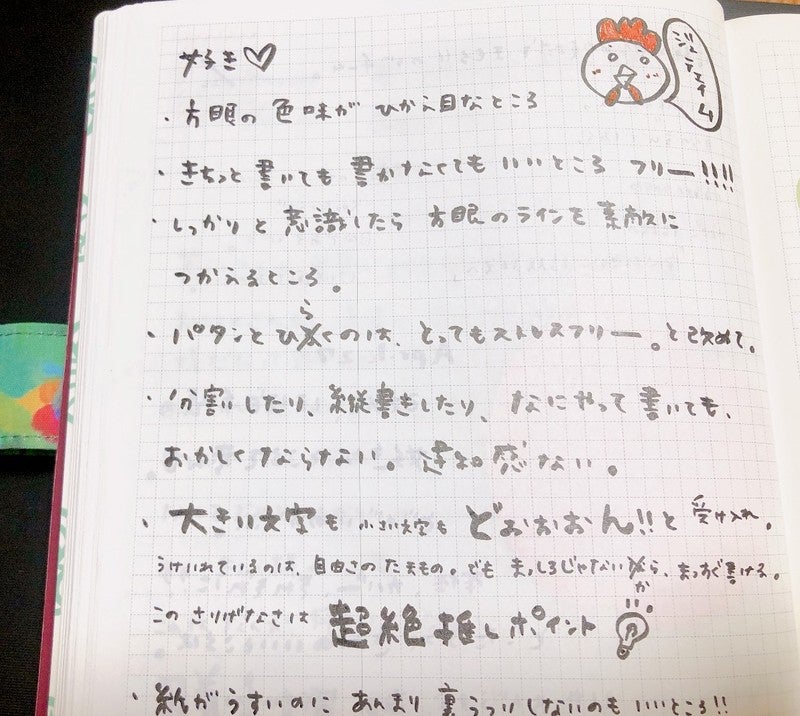 好き♡
ジュテェイム
・方眼の色味が ひかえ目なところ
・きちっと書いても 書かなくても いいところ フリー!!!!
・しっかりと 意識したら 方眼のラインを 素敵に
つかえるところ。
・パタンと ひらくのは、とってもストレスフリー。と改めて。
・分割したり、縦書きしたり、なにやって書いても、
おかしくならない。違和感ない。
・大きい文字も 小さい文字も どぉおおおん!!と 受け入れ。
うけいれているのは、自由さの たまもの。でも まっしろじゃないから、まっすぐ書ける。
この さりげなさは 超絶推しポイント
・紙がうすいのに あんまり 裏うつりしないのも いいところ!!